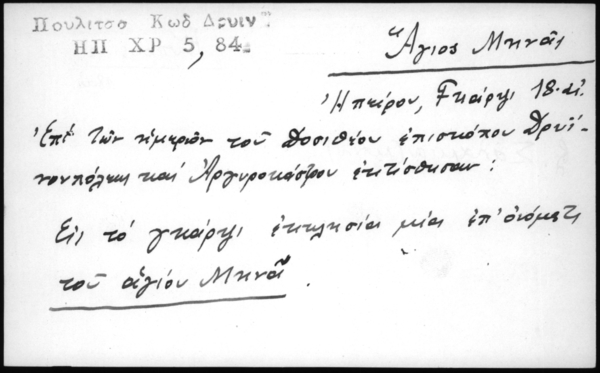 Πουλιτσο Κωδ Δρυιν
ΗΠ ΧΡ 5, 84.
Ἅγιος Μηνᾶς
Ἠπείρου, Γκάρψι 18. αἰ.
Ἐπὶ τῶν ἡμερῶν τοῦ Δοσιθέου ἐπισκόπου Δρυϊ-
νουπόλεως καὶ Ἀργυροκάστρου ἐκτίσθησαν:
Εἰς τό γκάρψι ἐκκλησία μία ἐπ' ὀνόματι
τοῦ ἁγίου Μηνᾶ.